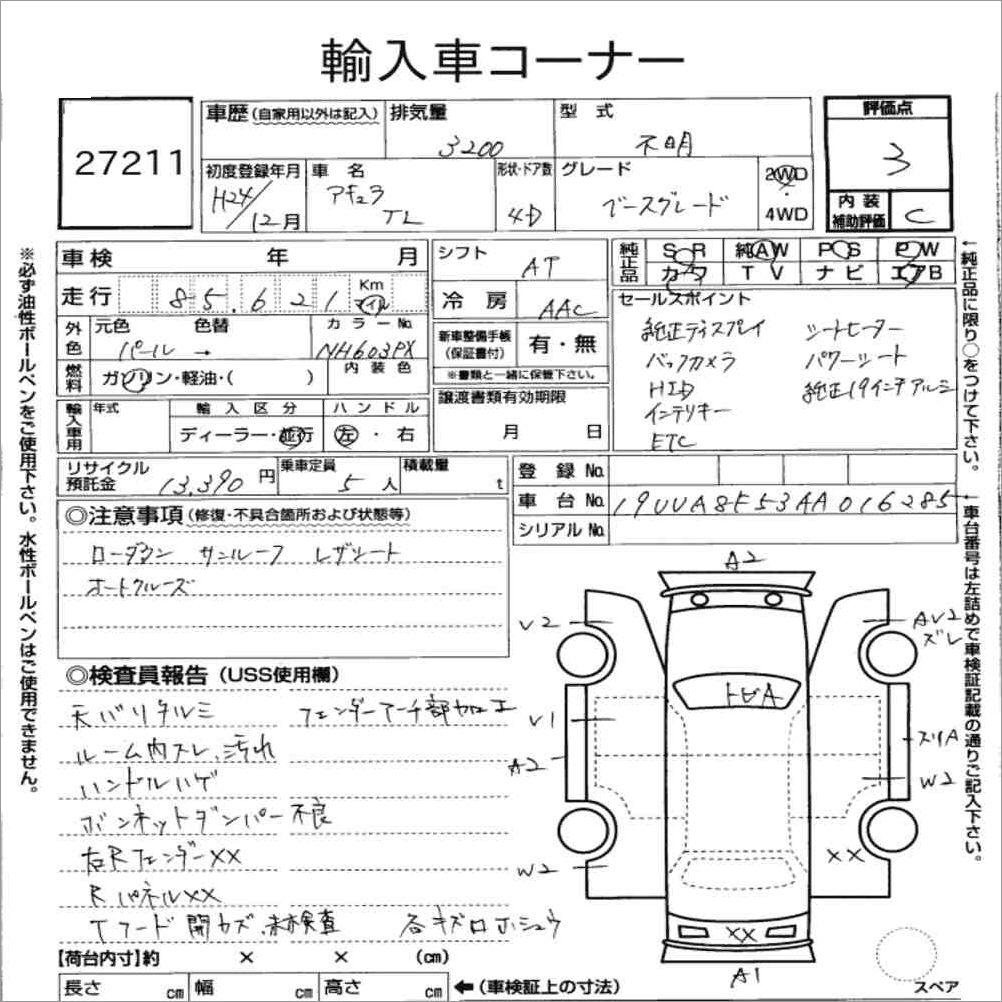 輸入車コーナー
27211
車歴(自家用以外は記入) 排気量 3200 型式 不明
評価点 3
初度登録年月 H24/12月 車名 アキュラ TL 形状・ドア数 4D グレード ベースグレード 2WD 4WD
内装補助評価 C
車検 年 月
シフト AT
純正品 SR 純AW PS PW
カワ TV ナビ エアB
走行 85,621 Km マイル
冷房 AAC
セールスポイント
純正ディスプレイ シートヒーター
バックカメラ パワーシート
HID 純正19インチアルミ
インテリキー
ETC
外色 元色 色替 カラーNo.
パール → NH603PX
新車整備手帳(保証書付) 有・無
※書類と一緒に保管下さい。
燃料 ガソリン・軽油・( ) 内装色
譲渡書類有効期限 月 日
輸入車用 年式 輸入区分 ハンドル
ディーラー・並行 左・右
リサイクル預託金 13,390円 乗車定員 5人 積載量 t
登録No.
車台No. 19UUA8F53AA016285
シリアルNo.
◎注意事項(修復・不具合箇所および状態等)
ローダウン サンルーフ レザシート
オートクルーズ
◎検査員報告(USS使用欄)
天バリタルミ フェンダーアーチ部加工
ルーム内スレ、汚れ
ハンドルハゲ
ボンネットダンパー不良
右RフェンダーXX
RパネルXX
Tフード開カズ、未検査 各キズ
【荷台内寸】約 × × (cm)
長さ cm 幅 cm 高さ cm ←(車検証上の寸法)
A2
V2
AV2
ズレ
トビA
V1
A2
スリA
W2
W2
XX
XX
A1
スペア
※必ず油性ボールペンをご使用下さい。水性ボールペンはご使用できません。
←純正品に限り○をつけて下さい。
←車台番号は左詰めで車検証記載の通りご記入下さい。